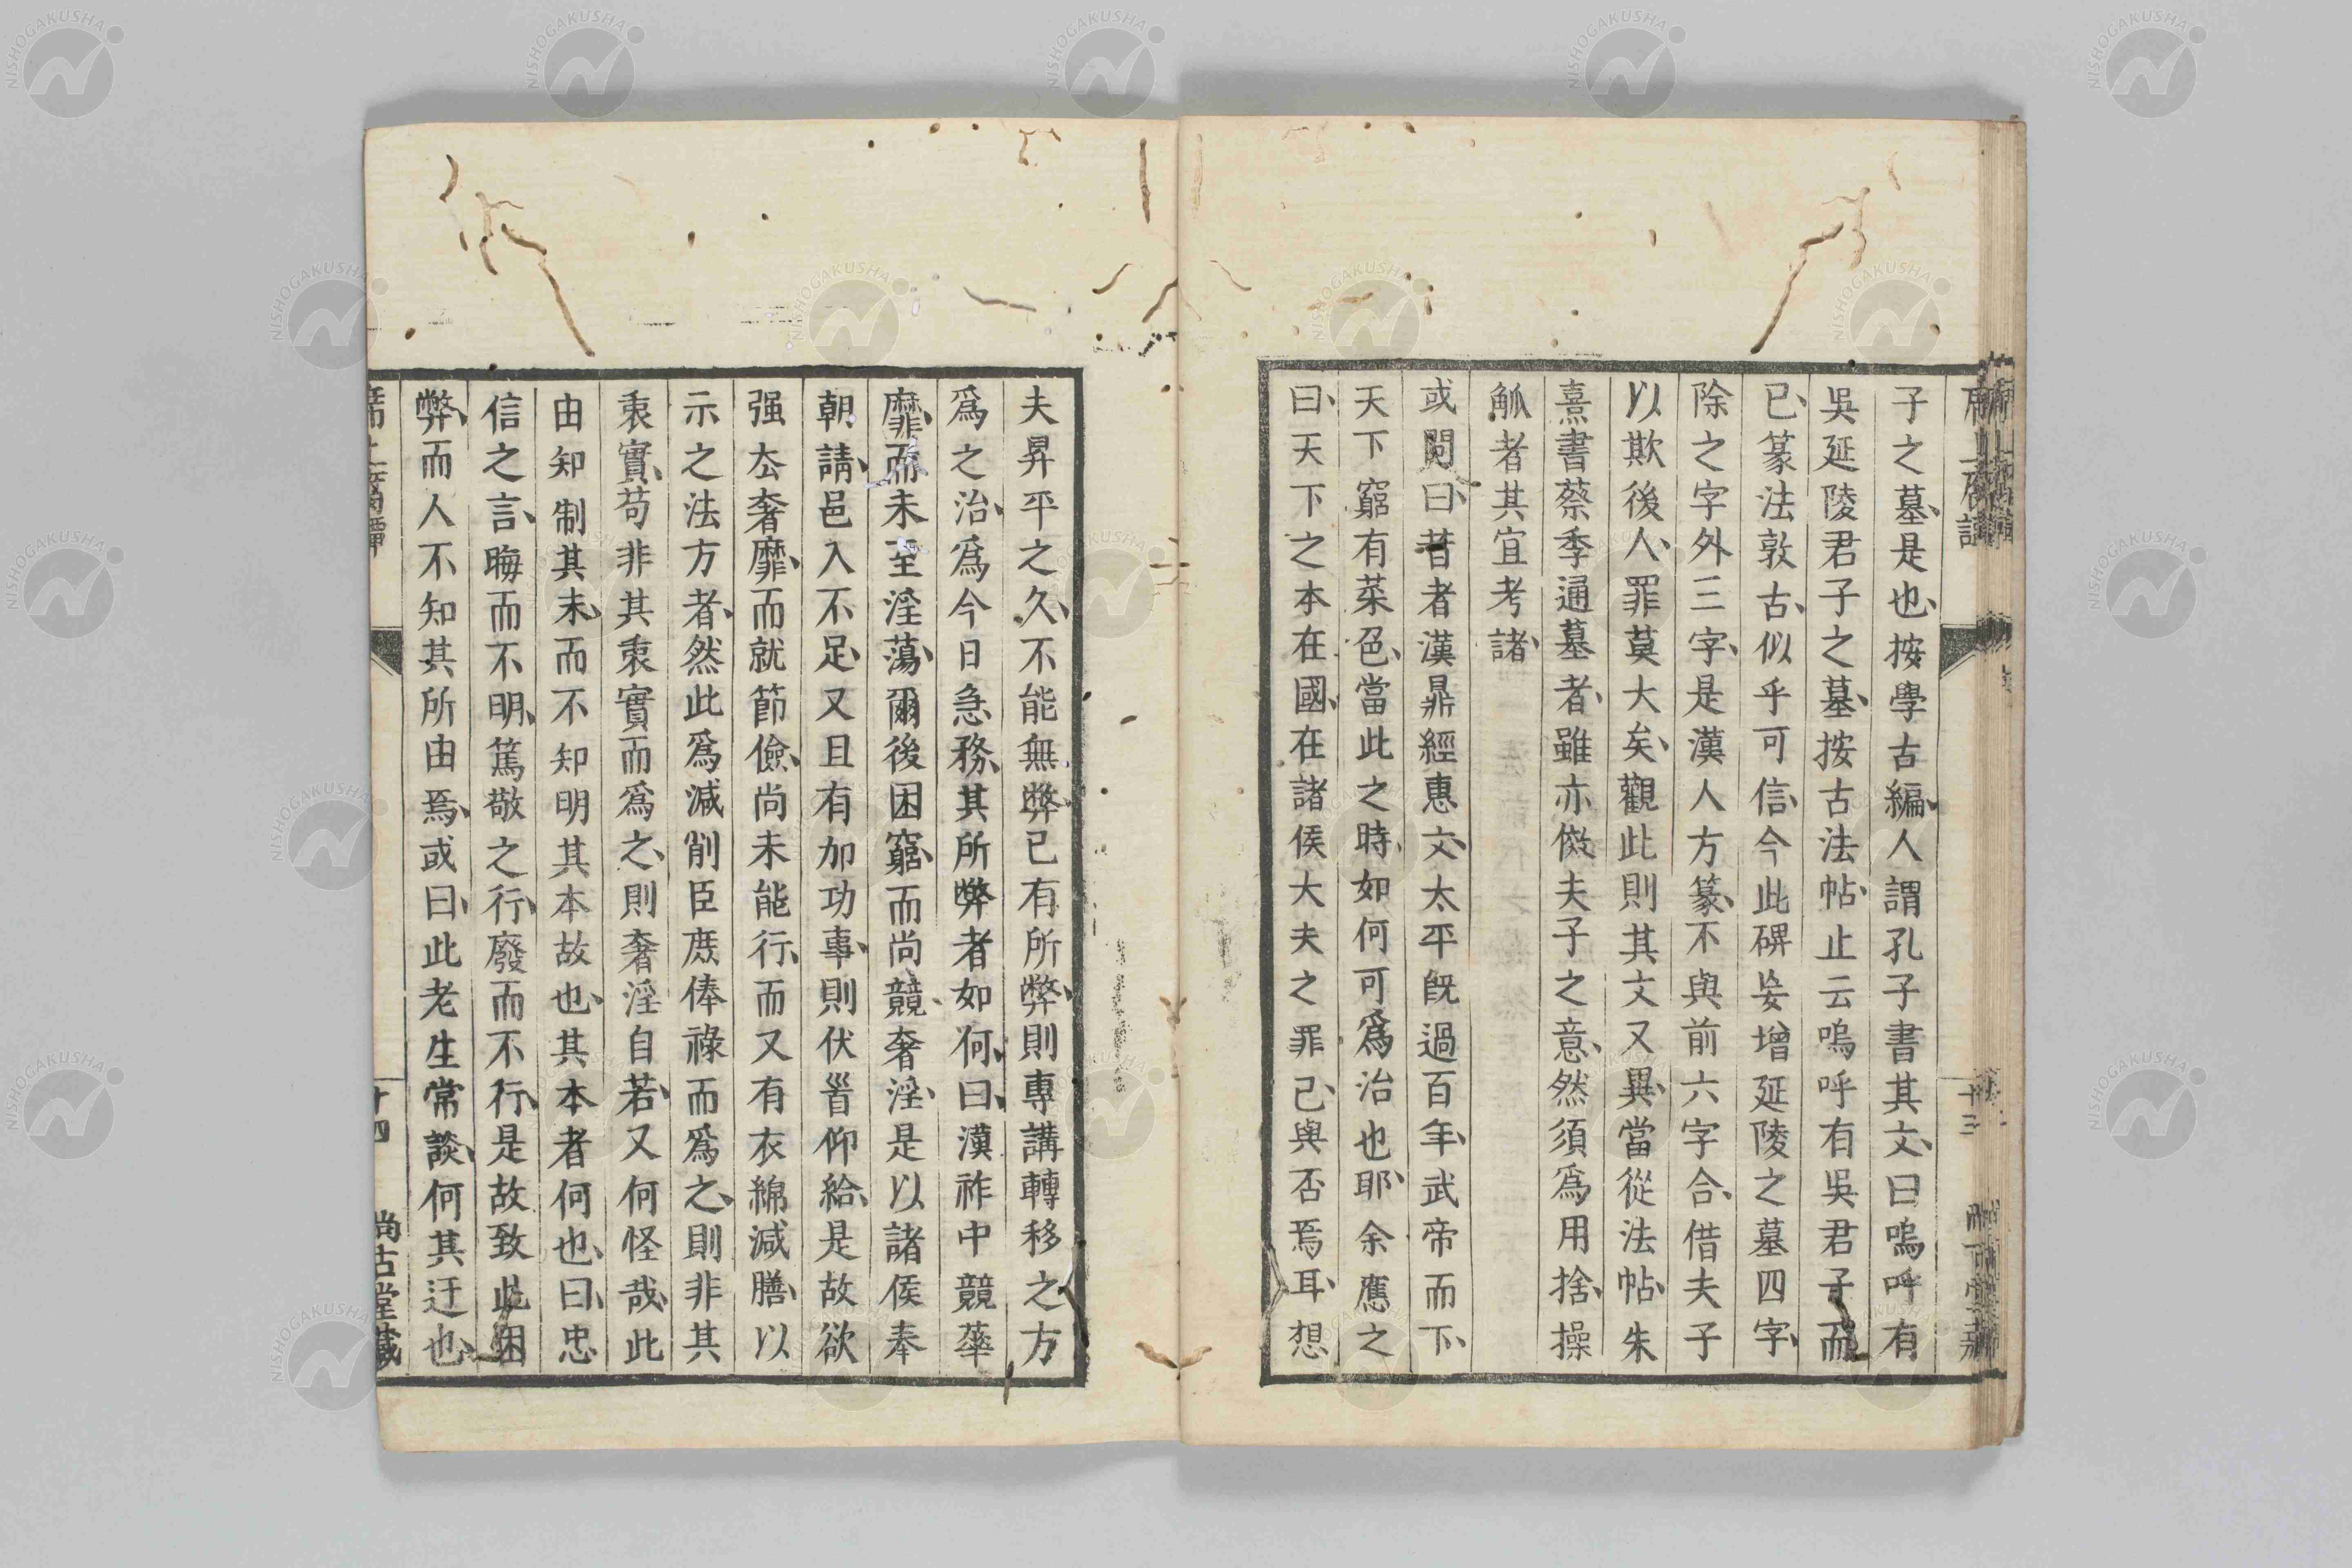 子之墓、是也、按學古編、人謂孔子書其文、曰嗚呼有
吳延陵君子之墓、按古法帖、止云嗚呼有吳君子而
已、篆法敦古、似乎可信、今此碑妄增延陵之墓四字、
除之字外三字、是漢人方篆、不與前六字合、借夫子
以欺後人、罪莫大矣、觀此則其文又異、當從法帖、朱
熹書蔡季通墓者、雖亦倣夫子之意、然須爲用捨、操
觚者其宜考諸、
或問曰、昔者漢鼎經惠文、太平旣過百年、武帝而下、
天下窮有菜色、當此之時、如何可爲治也耶、余應之
曰、天下之本在國、在諸侯大夫之罪己與否焉耳、想
夫昇平之久、不能無弊、已有所弊、則專講轉移之方
爲之治、爲今日急務、其所弊者如何、曰、漢祚中競華
靡、而未至淫蕩、爾後困窮、而尚競奢淫、是以諸侯奉
朝請、邑入不足、又且有加功事、則伏眚仰給、是故欲
强厺奢靡、而就節儉、尚未能行、而又有衣綿減膳、以
示之法方者、然此爲減削臣庶俸祿而爲之、則非其
衷實、苟非其衷實而爲之、則奢淫自若、又何怪哉、此
由知制其末、而不知明其本故也、其本者何也、曰、忠
信之言、晦而不明、篤敬之行、廢而不行、是故致此困
弊、而人不知其所由焉、或曰、此老生常談、何其迂也、
十三
十四
尚古堂藏